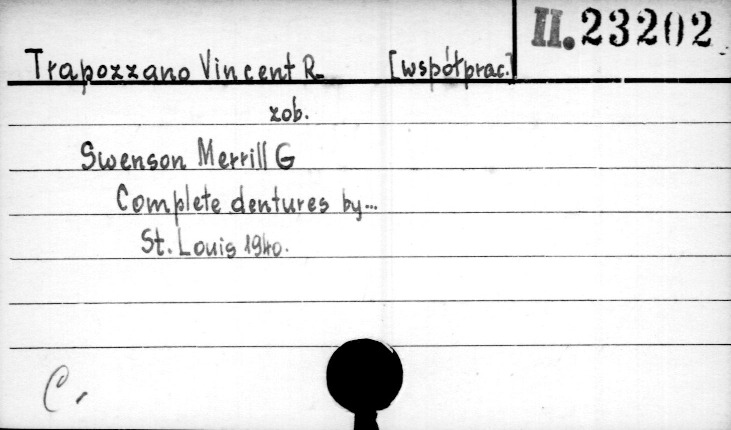 II. 23202
Trapozzano Vincent R. [współprac.]
zob.
Swenson Merrill G
Complete dentures by...
St. Louis 1940.
C.